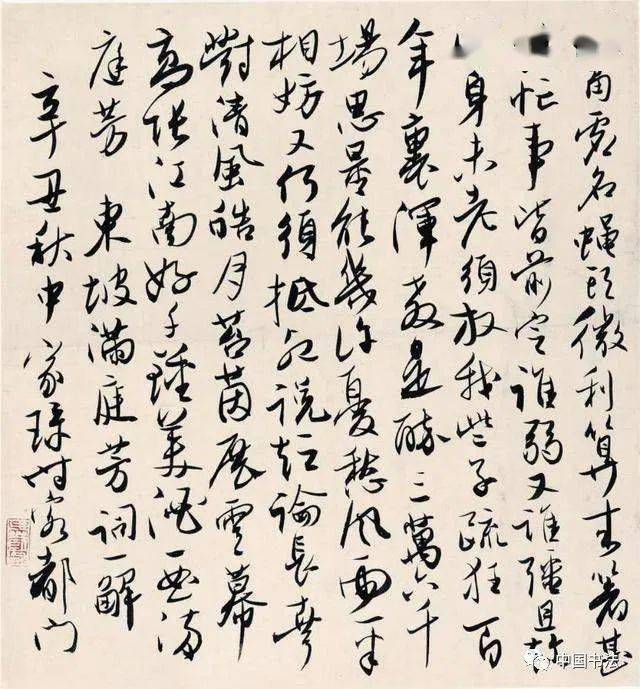 角虛名蠅頭微利算來著甚
忙事皆前定誰弱又誰彊且趁
身未老須放我些子疏狂百
年裏渾教是醉三萬六千
場思量能幾許憂愁風雨一半
相妨又何須抵死說短論長幸
對清風皓月苔茵展雲幕
高張江南好千鍾美酒一曲滿
庭芳 東坡滿庭芳詞一解
辛丑秋中家琭時客都門
中国书法